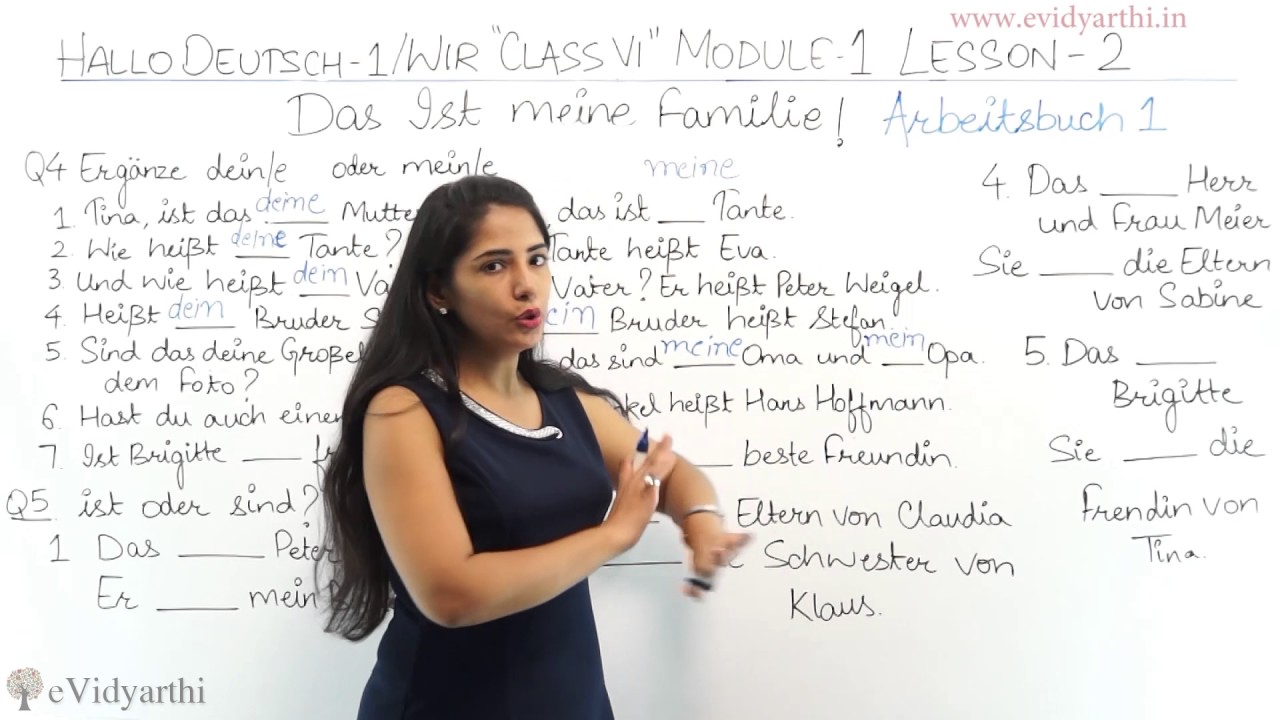 www.evidyarthi.in
HALLO DEUTSCH-1/WIR "CLASS VI" MODULE-1 LESSON-2
Das Ist meine Familie! Arbeitsbuch 1
Q4 Ergänze dein/e oder mein/e
meine
1. Tina, ist das deine ___ das ist ___ Tante.
2. Wie heißt deine Tante? Tante heißt Eva.
3. Und wie heißt dein Vater? Er heißt Peter Weigel.
4. Heißt dein Bruder Bruder heißt Stefan.
5. Sind das deine das sind meine Oma und mein Opa.
dem Foto?
6. Hast du auch heißt Hans Hoffmann.
7. Ist Brigitte ___ ___ beste Freundin.
Q5 ist oder sind?
1 Das ___ Peter
Er ___ mein
Eltern von Claudia
Schwester von
Klaus.
4. Das ___ Herr
und Frau Meier
Sie ___ die Eltern
von Sabine
5. Das ___
Brigitte
Sie ___ die
Frendin von
Tina.
eVidyarthi